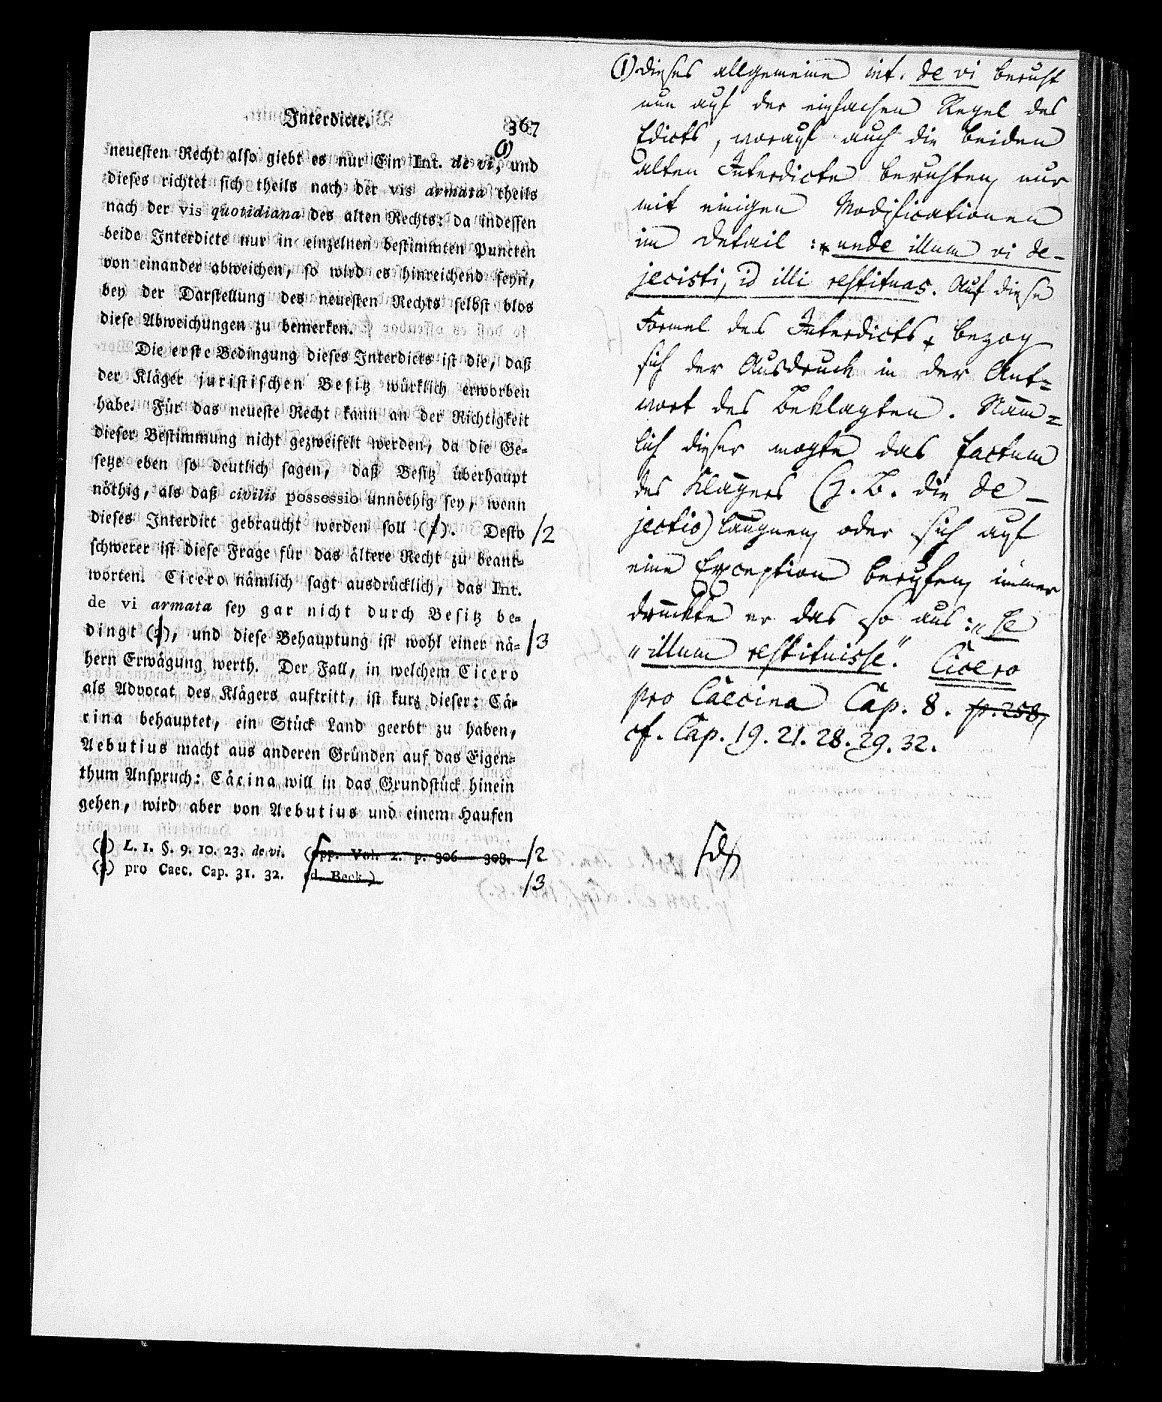 Interdicte. 367
neuesten Recht also giebt es nur Ein Int. de vi, (1) und
dieses richtet sich theils nach der vis armata theils
nach der vis quotidiana des alten Rechts: da indessen
beide Interdicte nur in einzelnen bestimmten Puncten
von einander abweichen, so wird es hinreichend seyn,
bey der Darstellung des neuesten Rechts selbst blos
diese Abweichungen zu bemerken.
Die erste Bedingung dieses Interdicts ist die, daß
der Kläger juristischen Besitz würklich erworben
habe. Für das neueste Recht kann an der Richtigkeit
dieser Bestimmung nicht gezweifelt werden, da die Ge-
setze eben so deutlich sagen, daß Besitz überhaupt
nöthig, als daß civilis possessio unnöthig sey, wenn
dieses Interdict gebraucht werden soll (1). Desto /2
schwerer ist diese Frage für das ältere Recht zu beant-
worten. Cicero nämlich sagt ausdrücklich, das Int.
de vi armata sey gar nicht durch Besitz be-
dingt (2), und diese Behauptung ist wohl einer nä- /3
hern Erwägung werth. Der Fall, in welchem Cicero
als Advocat des Klägers auftritt, ist kurz dieser: Cä-
cina behauptet, ein Stück Land geerbt zu haben,
Aebutius macht aus anderen Gründen auf das Eigen-
thum Anspruch: Cäcina will in das Grundstück hinein
gehen, wird aber von Aebutius und einem Haufen
(1) L. 1. §. 9. 10. 23. de vi. (opp. Vol. 2. p. 306-308. /2
(2) pro Caec. Cap. 31. 32. ed. Beck.) /3
(1) dieses allgemeine int. de vi beruht
nun auf der einfachen Regel des
Edicts, worauf auch die beiden
alten Interdicte beruhten, nur
mit einigen Modificationen
im Detail: unde illum vi de-
jecisti, id illi restituas. Auf diese
Formel des Interdicts bezog
sich der Ausdruck in der Ant-
wort des Beklagten. Näm-
lich dieser mogte das factum
des Klägers (z. B. die de-
jectio) läugnen, oder sich auf
eine Exception berufen, immer
drückte er das so aus: „se
„illum restituisse“. Cicero
pro Caecina Cap. 8. p. 258,
cf. Cap. 19. 21. 28. 29. 32.